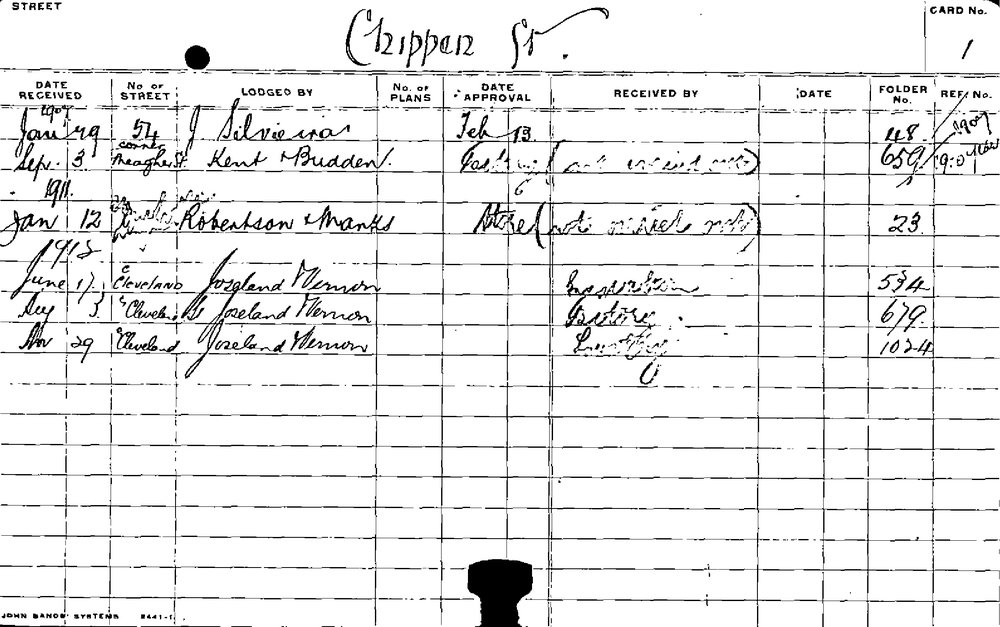 STREET
Chippen St.
CARD No.
1
DATE RECEIVED No. OF STREET LODGED BY No. OF PLANS DATE APPROVAL RECEIVED BY DATE FOLDER No. REF. No.
1907
Jan 29 54 J Silvieira Feb 13 48 1907
Sep. 3 corner Meagher St. Kent & Budden. (not 659
1911.
Jan 12 Robertson & Marks Store (not 23
1912
June 17 Cleveland Joseland & Vernon 534
Aug 3 Cleveland St Joseland & Vernon 679
Nov 29 Cleveland Joseland & Vernon 1024
JOHN SANDS' SYSTEMS 8441-1